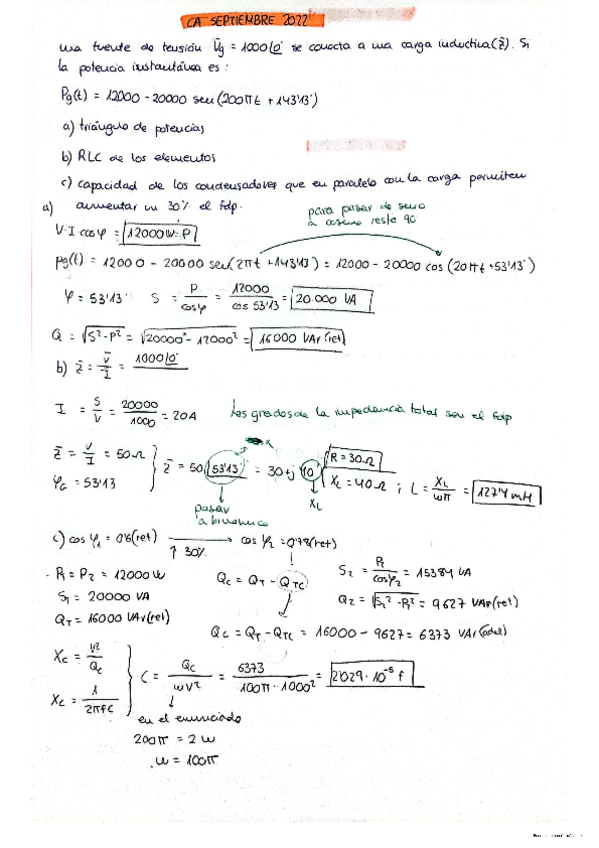 CA SEPTIEMBRE 2022
una fuente de tensión Ūg = 1000|0° se conecta a una carga inductiva (z̄). Si
la potencia instantánea es:
Pg(t) = 12000 - 20000 sen (200πt + 143'13°)
a) triángulo de potencias
b) RLC de los elementos
c) capacidad de los condensadores que en paralelo con la carga permiten
aumentar un 30% el fdp.
a)
para pasar de seno
a coseno resto 90
V·I cosφ = 12000 W = P
pg(t) = 12000 - 20000 sen (2πt + 143'13°) = 12000 - 20000 cos (20πt + 53'13°)
φ = 53'13° S = P/cosφ = 12000/cos 53'13 = 20.000 VA
Q = √S²-P² = √20000² - 12000² = 16000 VAr (ret)
b) z̄ = V̄/Ī = 1000|0°
I = S/V = 20000/1000 = 20A los grados de la impedancia total son el fdp
z̄ = V/I = 50Ω
φG = 53'13
z̄ = 50|53'13° = 30 + j 40 R = 30Ω
XL = 40Ω ; L = XL/ωπ = 127'4 mH
pasar
a binómico
XL
c) cos φ1 = 0'6 (ret) → cos φ2 = 0'78 (ret)
↑ 30%
P1 = P2 = 12000 W
S1 = 20000 VA
QT = 16000 VAr (ret)
Qc = QT - QTC
S2 = P2/cosφ2 = 15384 VA
Q2 = √S2² - P2² = 9627 VAr (ret)
Qc = QT - QTC = 16000 - 9627 = 6373 VAr (adel)
Xc = V²/Qc
Xc = 1/2πfC
C = Qc/ωV² = 6373/100π·1000² = 2'029·10⁻⁵ f
en el enunciado
200π = 2ω
ω = 100π